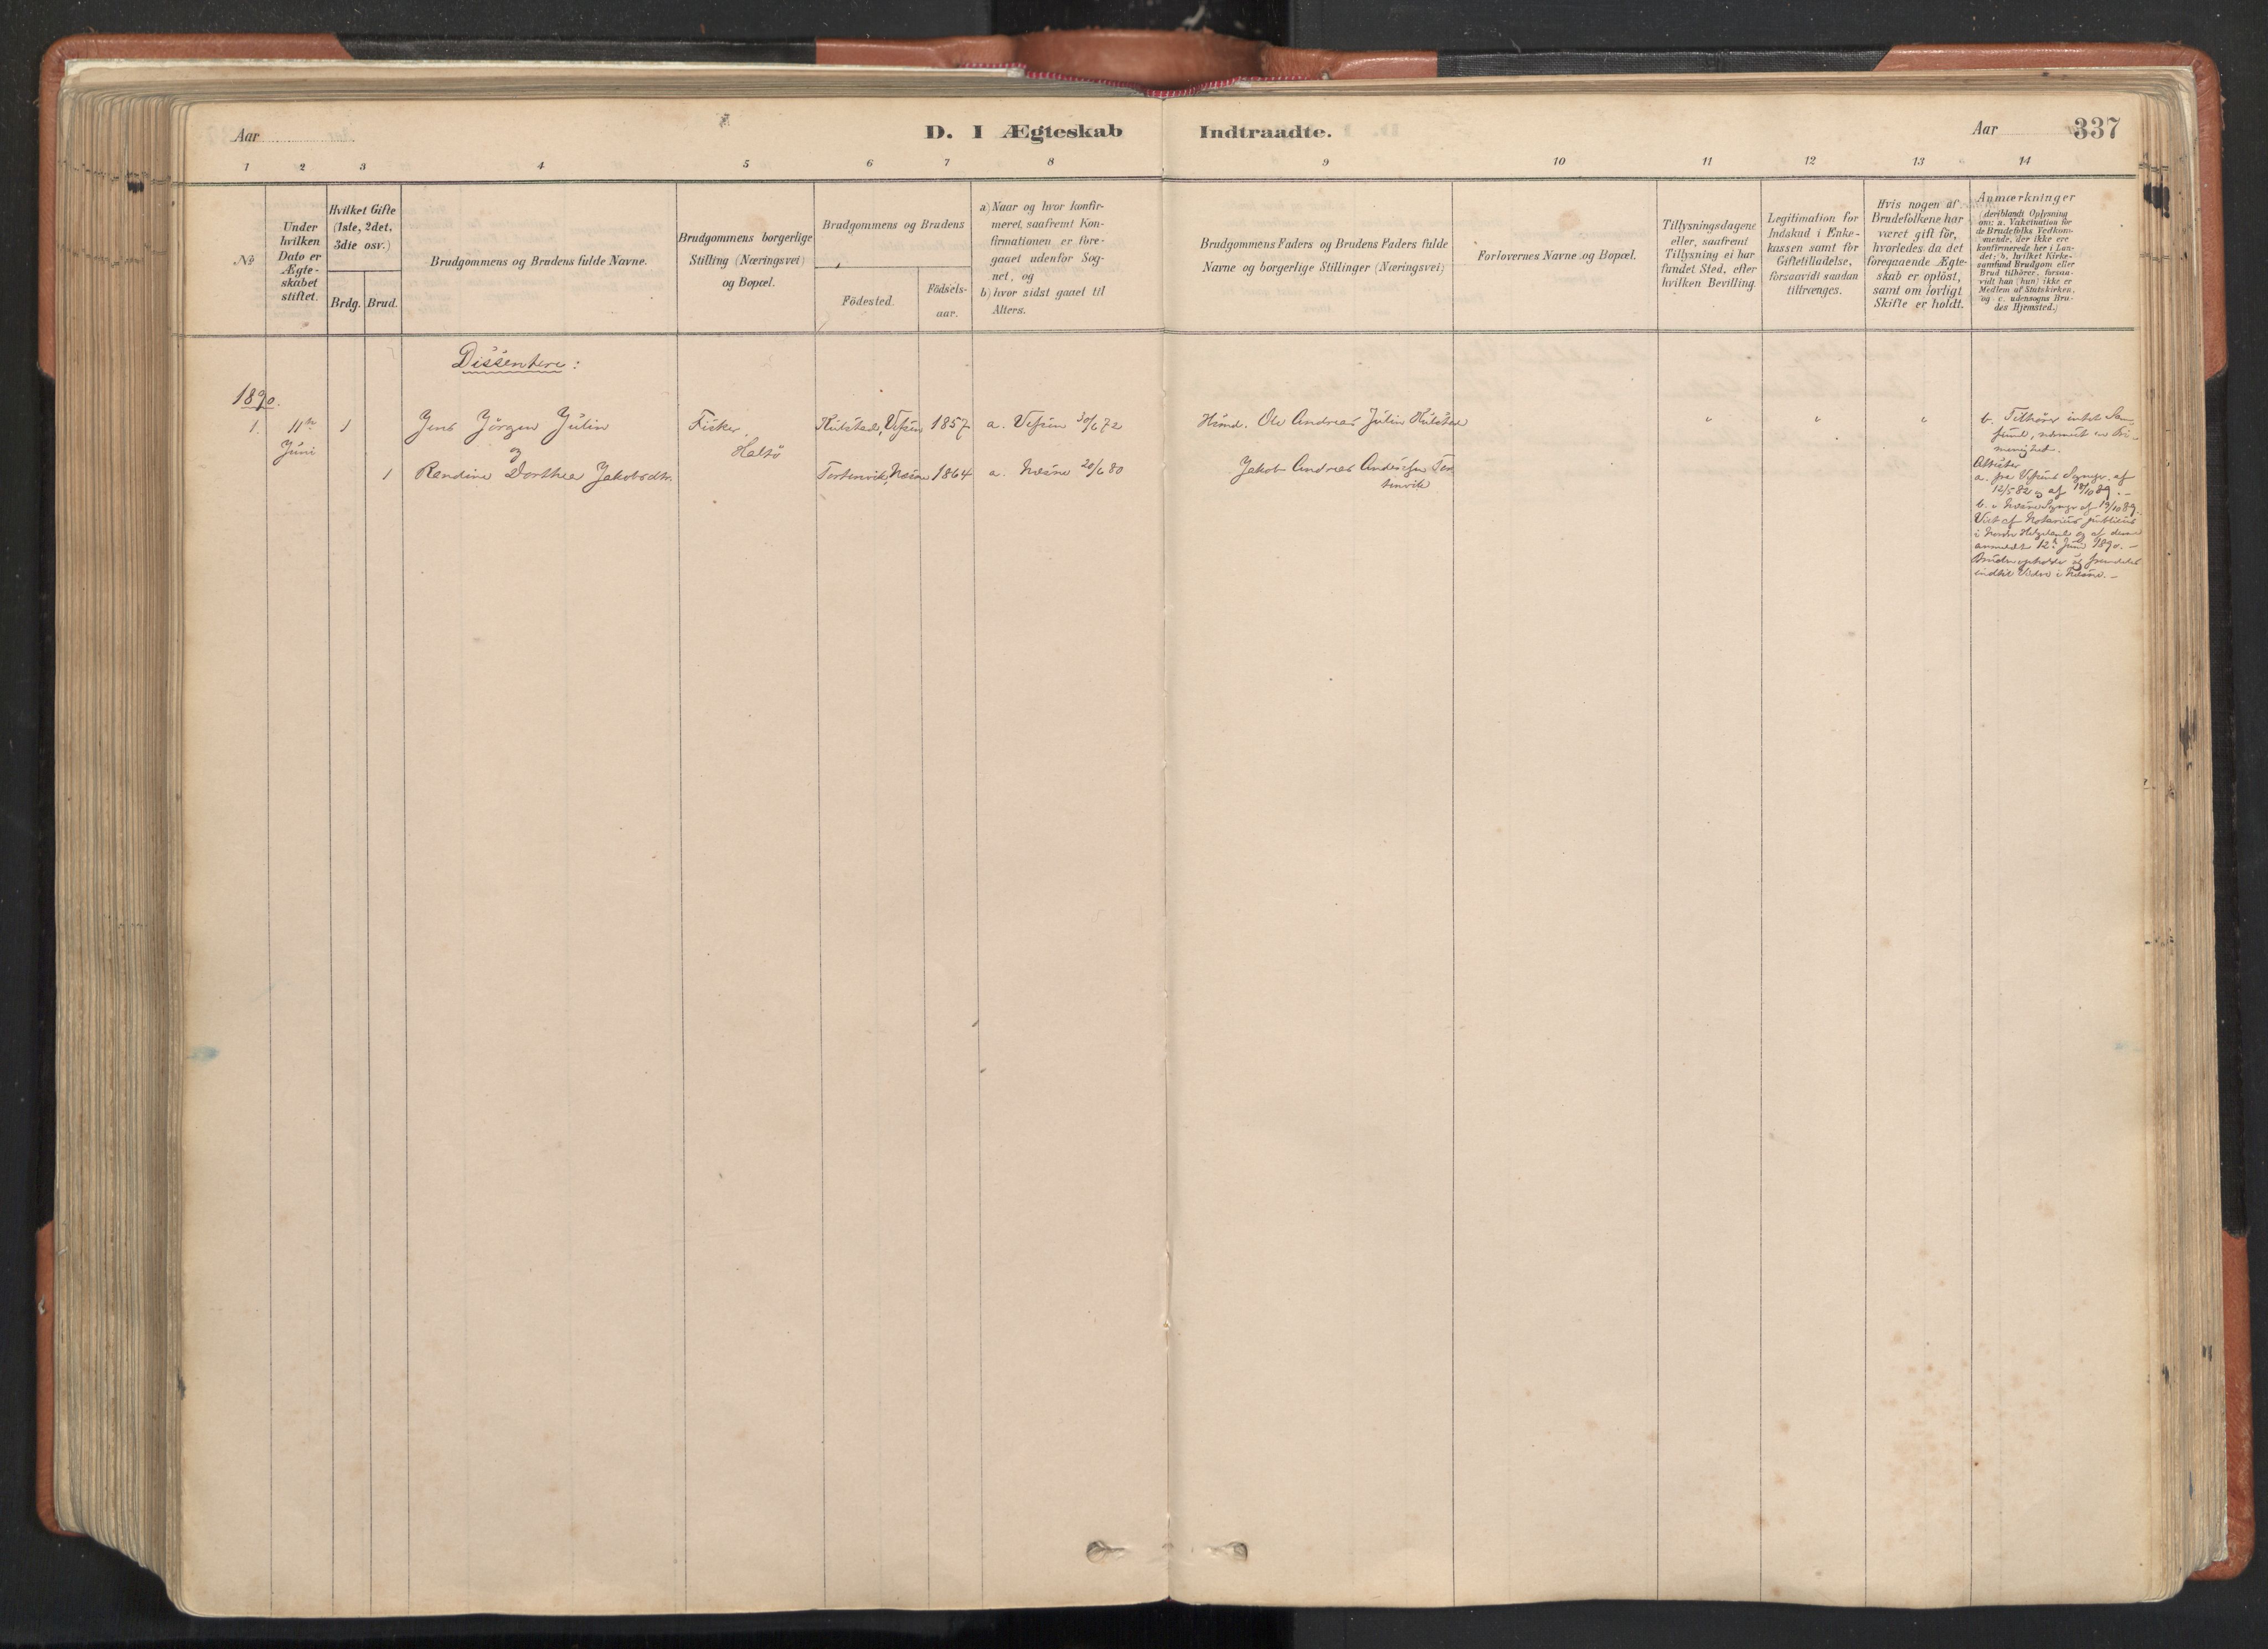 Aar
D. I Ægteskab
Indtraadte.
Aar
337
1 2 3 4 5 6 7 8 9 10 11 12 13 14
No
Under
hvilken
Dato er
Ægte-
skabet
stiftet.
Hvilket Gifte
(1ste, 2det,
3die osv.)
Brdg. Brud.
Brudgommens og Brudens fulde Navne.
Brudgommens borgerlige
Stilling (Næringsvei)
og Bopæl.
Brudgommens og Brudens
Födested.
Födsels-
aar.
a) Naar og hvor konfir-
meret, saafremt Kon-
firmationen er fore-
gaaet udenfor Sog-
net, og
b) hvor sidst gaaet til
Alters.
Brudgommens Faders og Brudens Faders fulde
Navne og borgerlige Stillinger (Næringsvei)
Forlovernes Navne og Bopæl.
Tillysningsdagene
eller, saafremt
Tillysning ei har
fundet Sted, efter
hvilken Bevilling.
Legitimation for
Indskud i Enke-
kassen samt for
Giftetilladelse,
forsaavidt saadan
tiltrænges.
Hvis nogen af
Brudefolkene har
været gift för,
hvorledes da det
foregaaende Ægte-
skab er oplöst,
samt om lovligt
Skifte er holdt.
Anmærkninger
(deriblandt Oplysning
om: a. Vakcination for
de Brudefolks Vedkom-
mende, der ikke ere
konfirmerede her i Lan-
det; b. hvilket Kirke-
samfund Brudgom eller
Brud tilhörer, forsaa-
vidt han (hun) ikke er
Medlem af Statskirken,
og c. udensogns Bru-
des Hjemsted.)
Dissentere:
1890.
1. 11te 1 Jens Jörgen Julin Fisker Kulstad, Vefsen 1857 a. Vefsen 30/6 72 Huusm. Ole Andreas Julin Kulstad " " "
Juni og Haltö
1 Rendine Dorthea Jakobsdtr. Tortenvik, Næsne 1864 a. Næsne 20/6 80 Jakob Andreas Anderssen Tor
tenvik
b. Tilhörer intet Sam-
fund, nærmest en Fri-
menighed.
Attester
a. fra Vefsens Sognepr. af
12/5 82 og af 18/10 89. -
b. - Næsne Sognepr af 19/10 89.
Viet af Notarius publicus
i Nordre Helgeland og af denne
anmeldt 12te Juni 1890. -